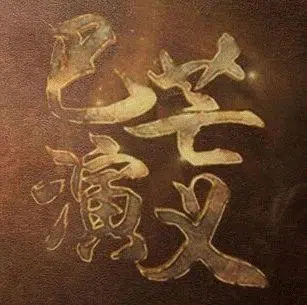 巴芒
演义